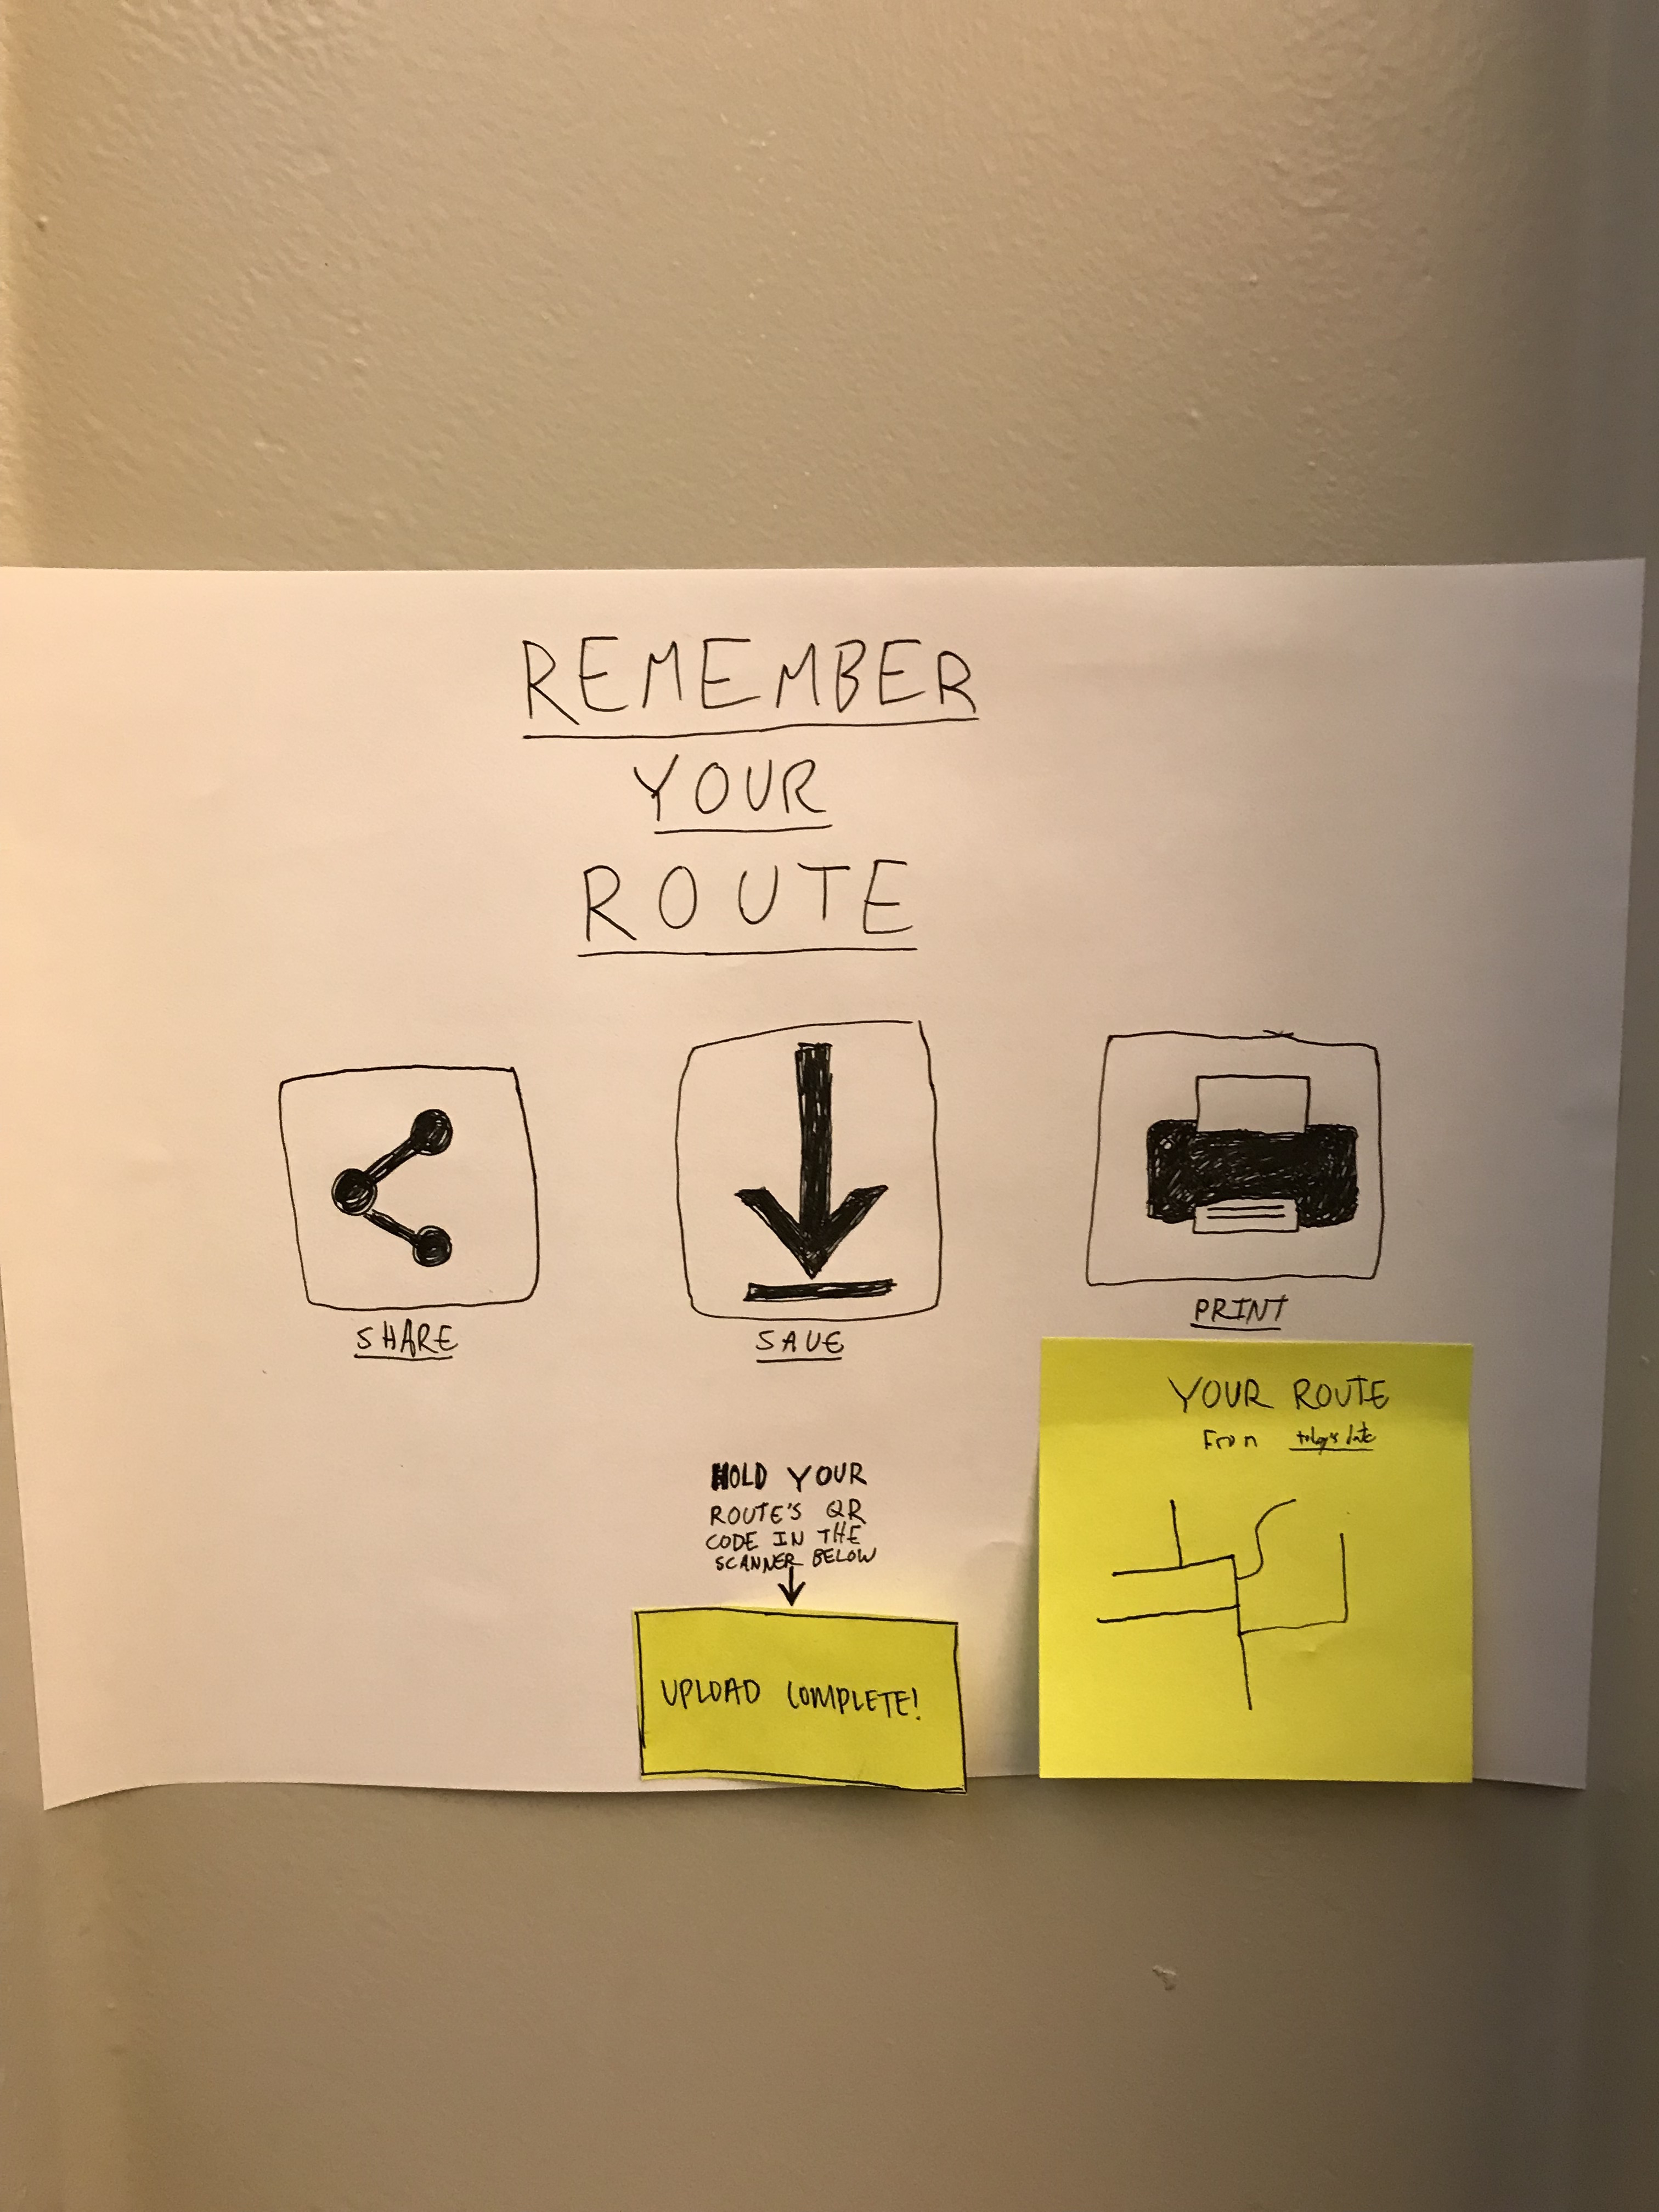 REMEMBER
YOUR
ROUTE
SHARE
SAVE
PRINT
HOLD YOUR
ROUTE'S QR
CODE IN THE
SCANNER BELOW
UPLOAD COMPLETE!
YOUR ROUTE
From today's date